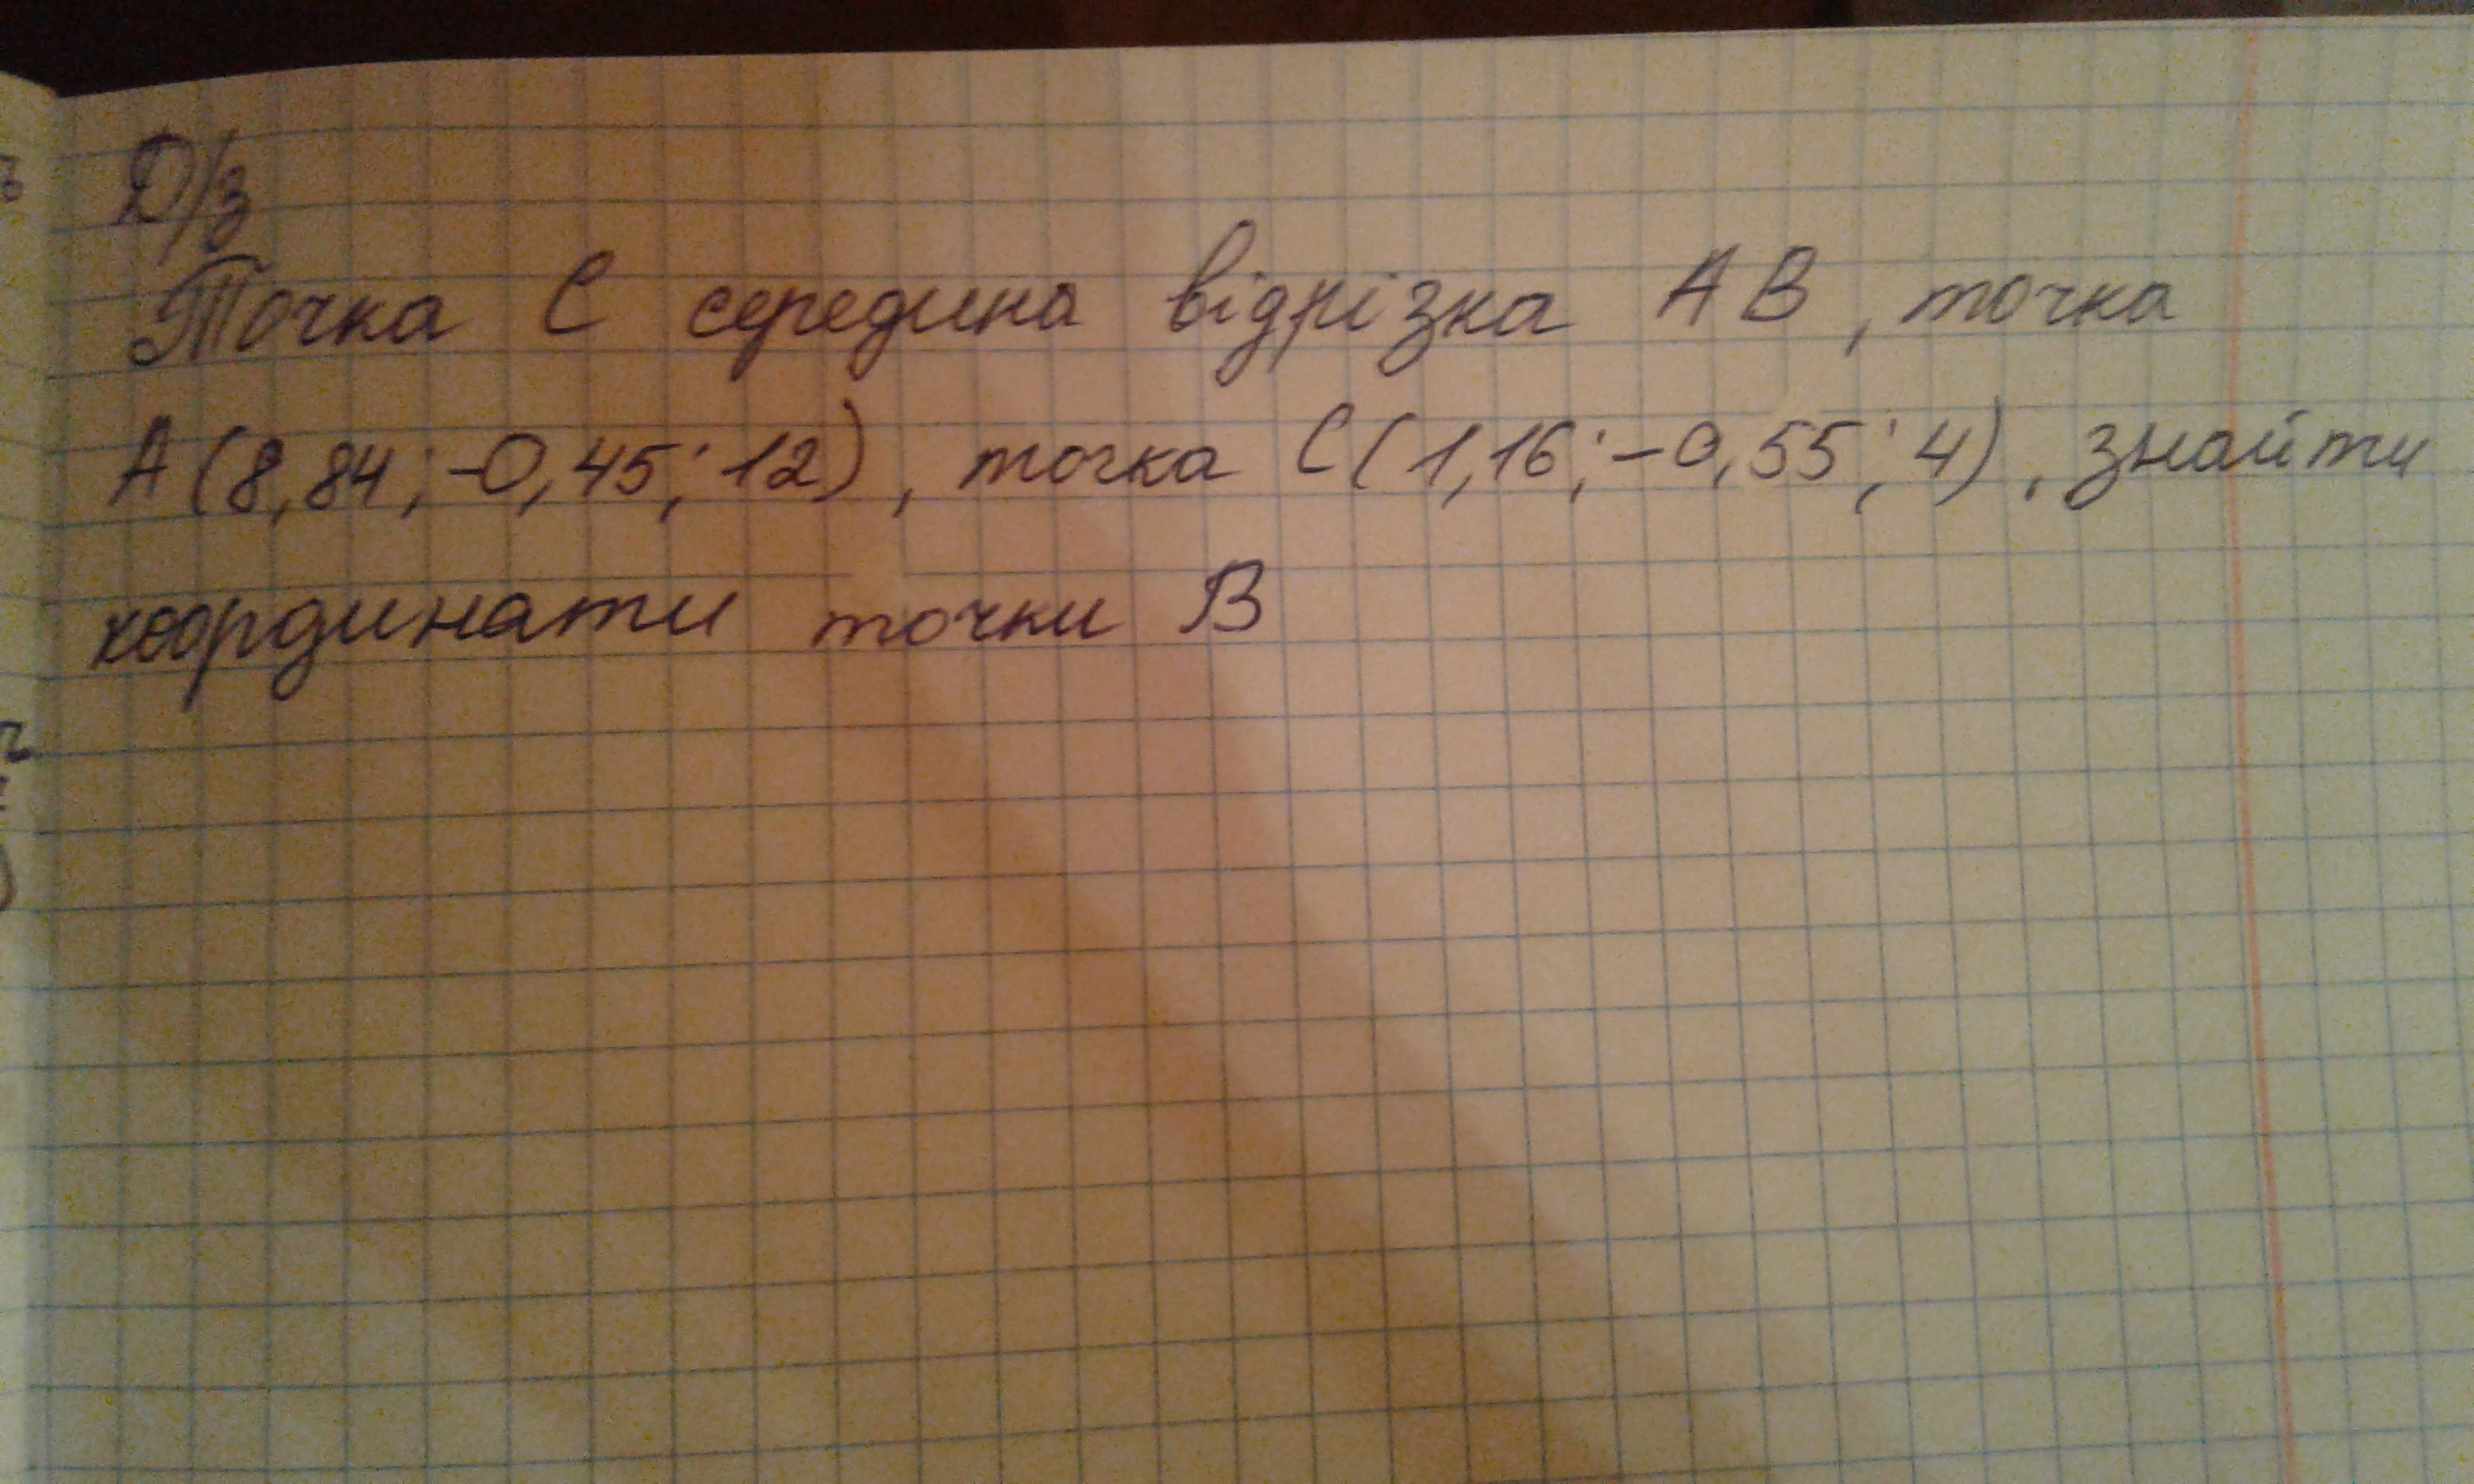 Д/з
Точка С середина відрізка АВ, точка
А(8,84; -0,45; 12), точка С(1,16; -0,55; 4), знайти
координати точки В